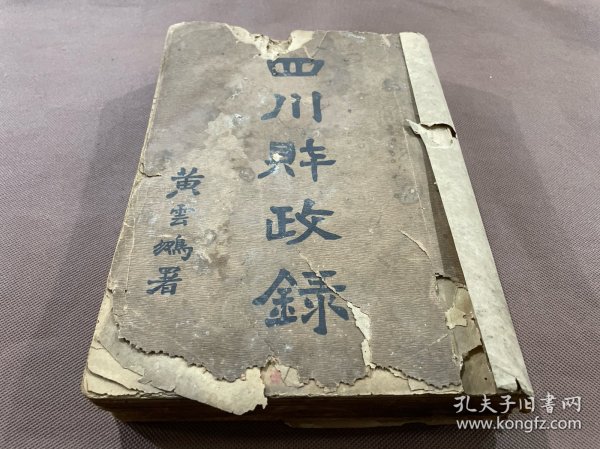 四川財政録
黃雲鵬署
孔夫子旧書网
www.kongfz.com